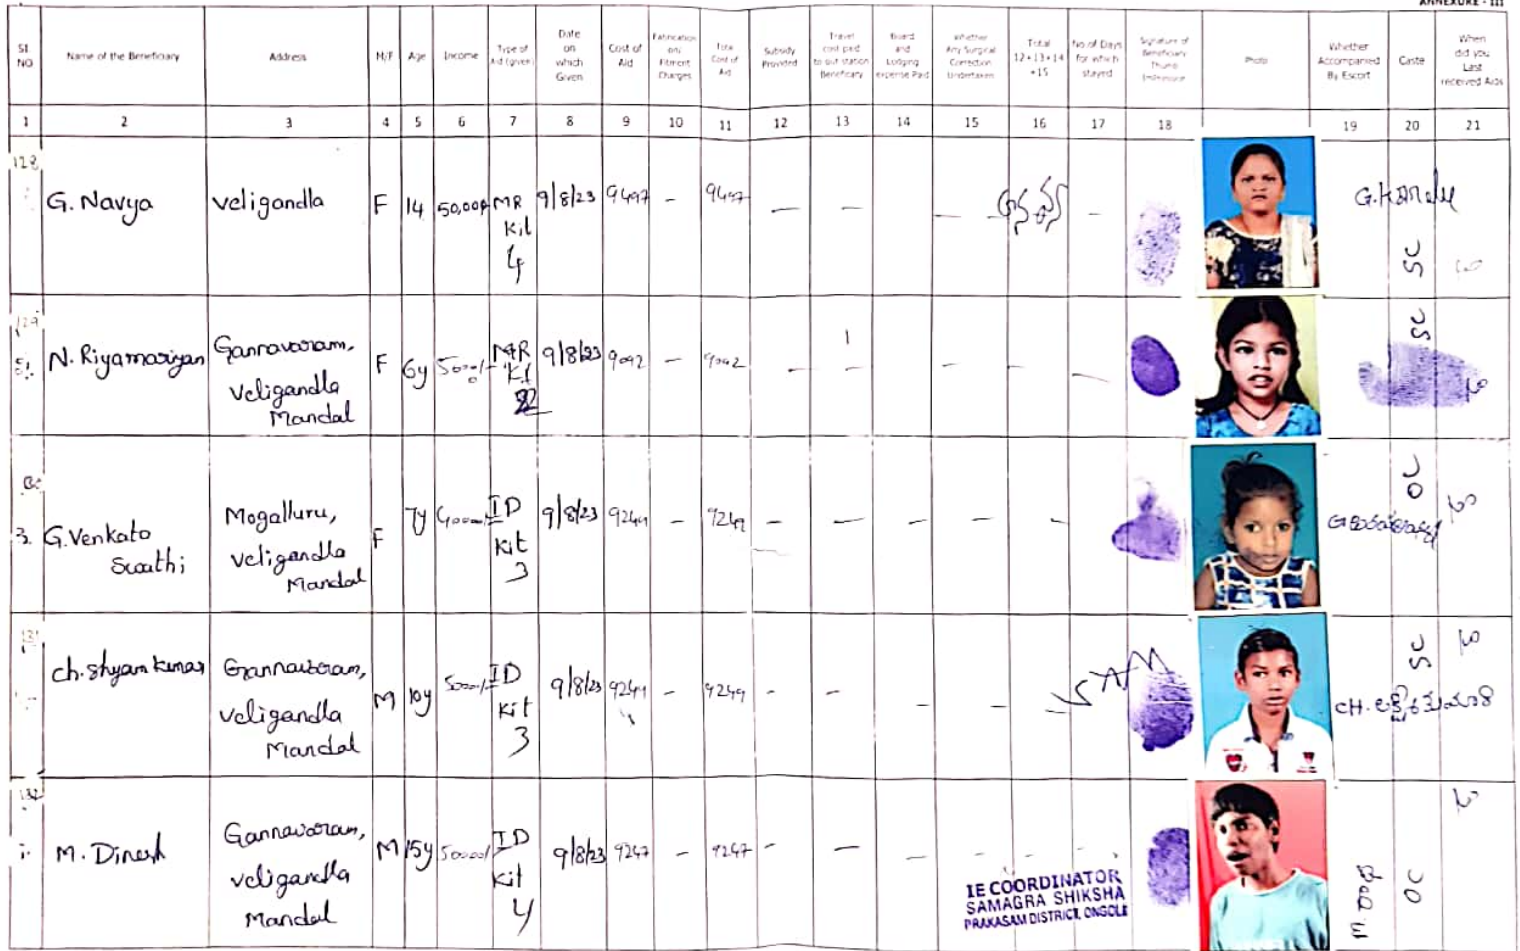 ANNEXURE - III
Sl NO Name of the Beneficiary Address M/F Age Income Type of Aid (given) Date on which Given Cost of Aid Fabrication on/ Fitment Charges Total Cost of Aid Subsidy Provided Travel cost paid to out station Beneficiary Board and Lodging expense Paid Whether Any Surgical Correction Undertaken Total 12+13+14+15 No of Days for which stayed Signature of Beneficiary Thumb Impression Photo Whether Accompanied By Escort Caste When did you Last received Aids
1 2 3 4 5 6 7 8 9 10 11 12 13 14 15 16 17 18 19 20 21
128 G. Navya Veligandla F 14 MR Kit 4 9/8/23 9497 - 9497 SC
129 N. Riyamariyan Gannavaram, Veligandla Mandal F 6y MR 9/8/23 9092 - 9092 SC
3. G. Venkata Swathi Mogalluru, Veligandla Mandal F 7y ID Kit 3 9/8/23 9249 - 9249 OC
131 Ch. Shyam Kumar Gannavaram, Veligandla Mandal M 10y ID Kit 3 9/8/23 9249 - 9249 SYAM SC
CH. లక్ష్మీకుమారి
132 M. Dinesh Gannavaram, Veligandla Mandal M 15y ID Kit 4 9/8/23 9247 - 9247 OC
IE COORDINATOR
SAMAGRA SHIKSHA
PRAKASAM DISTRICT, ONGOLE